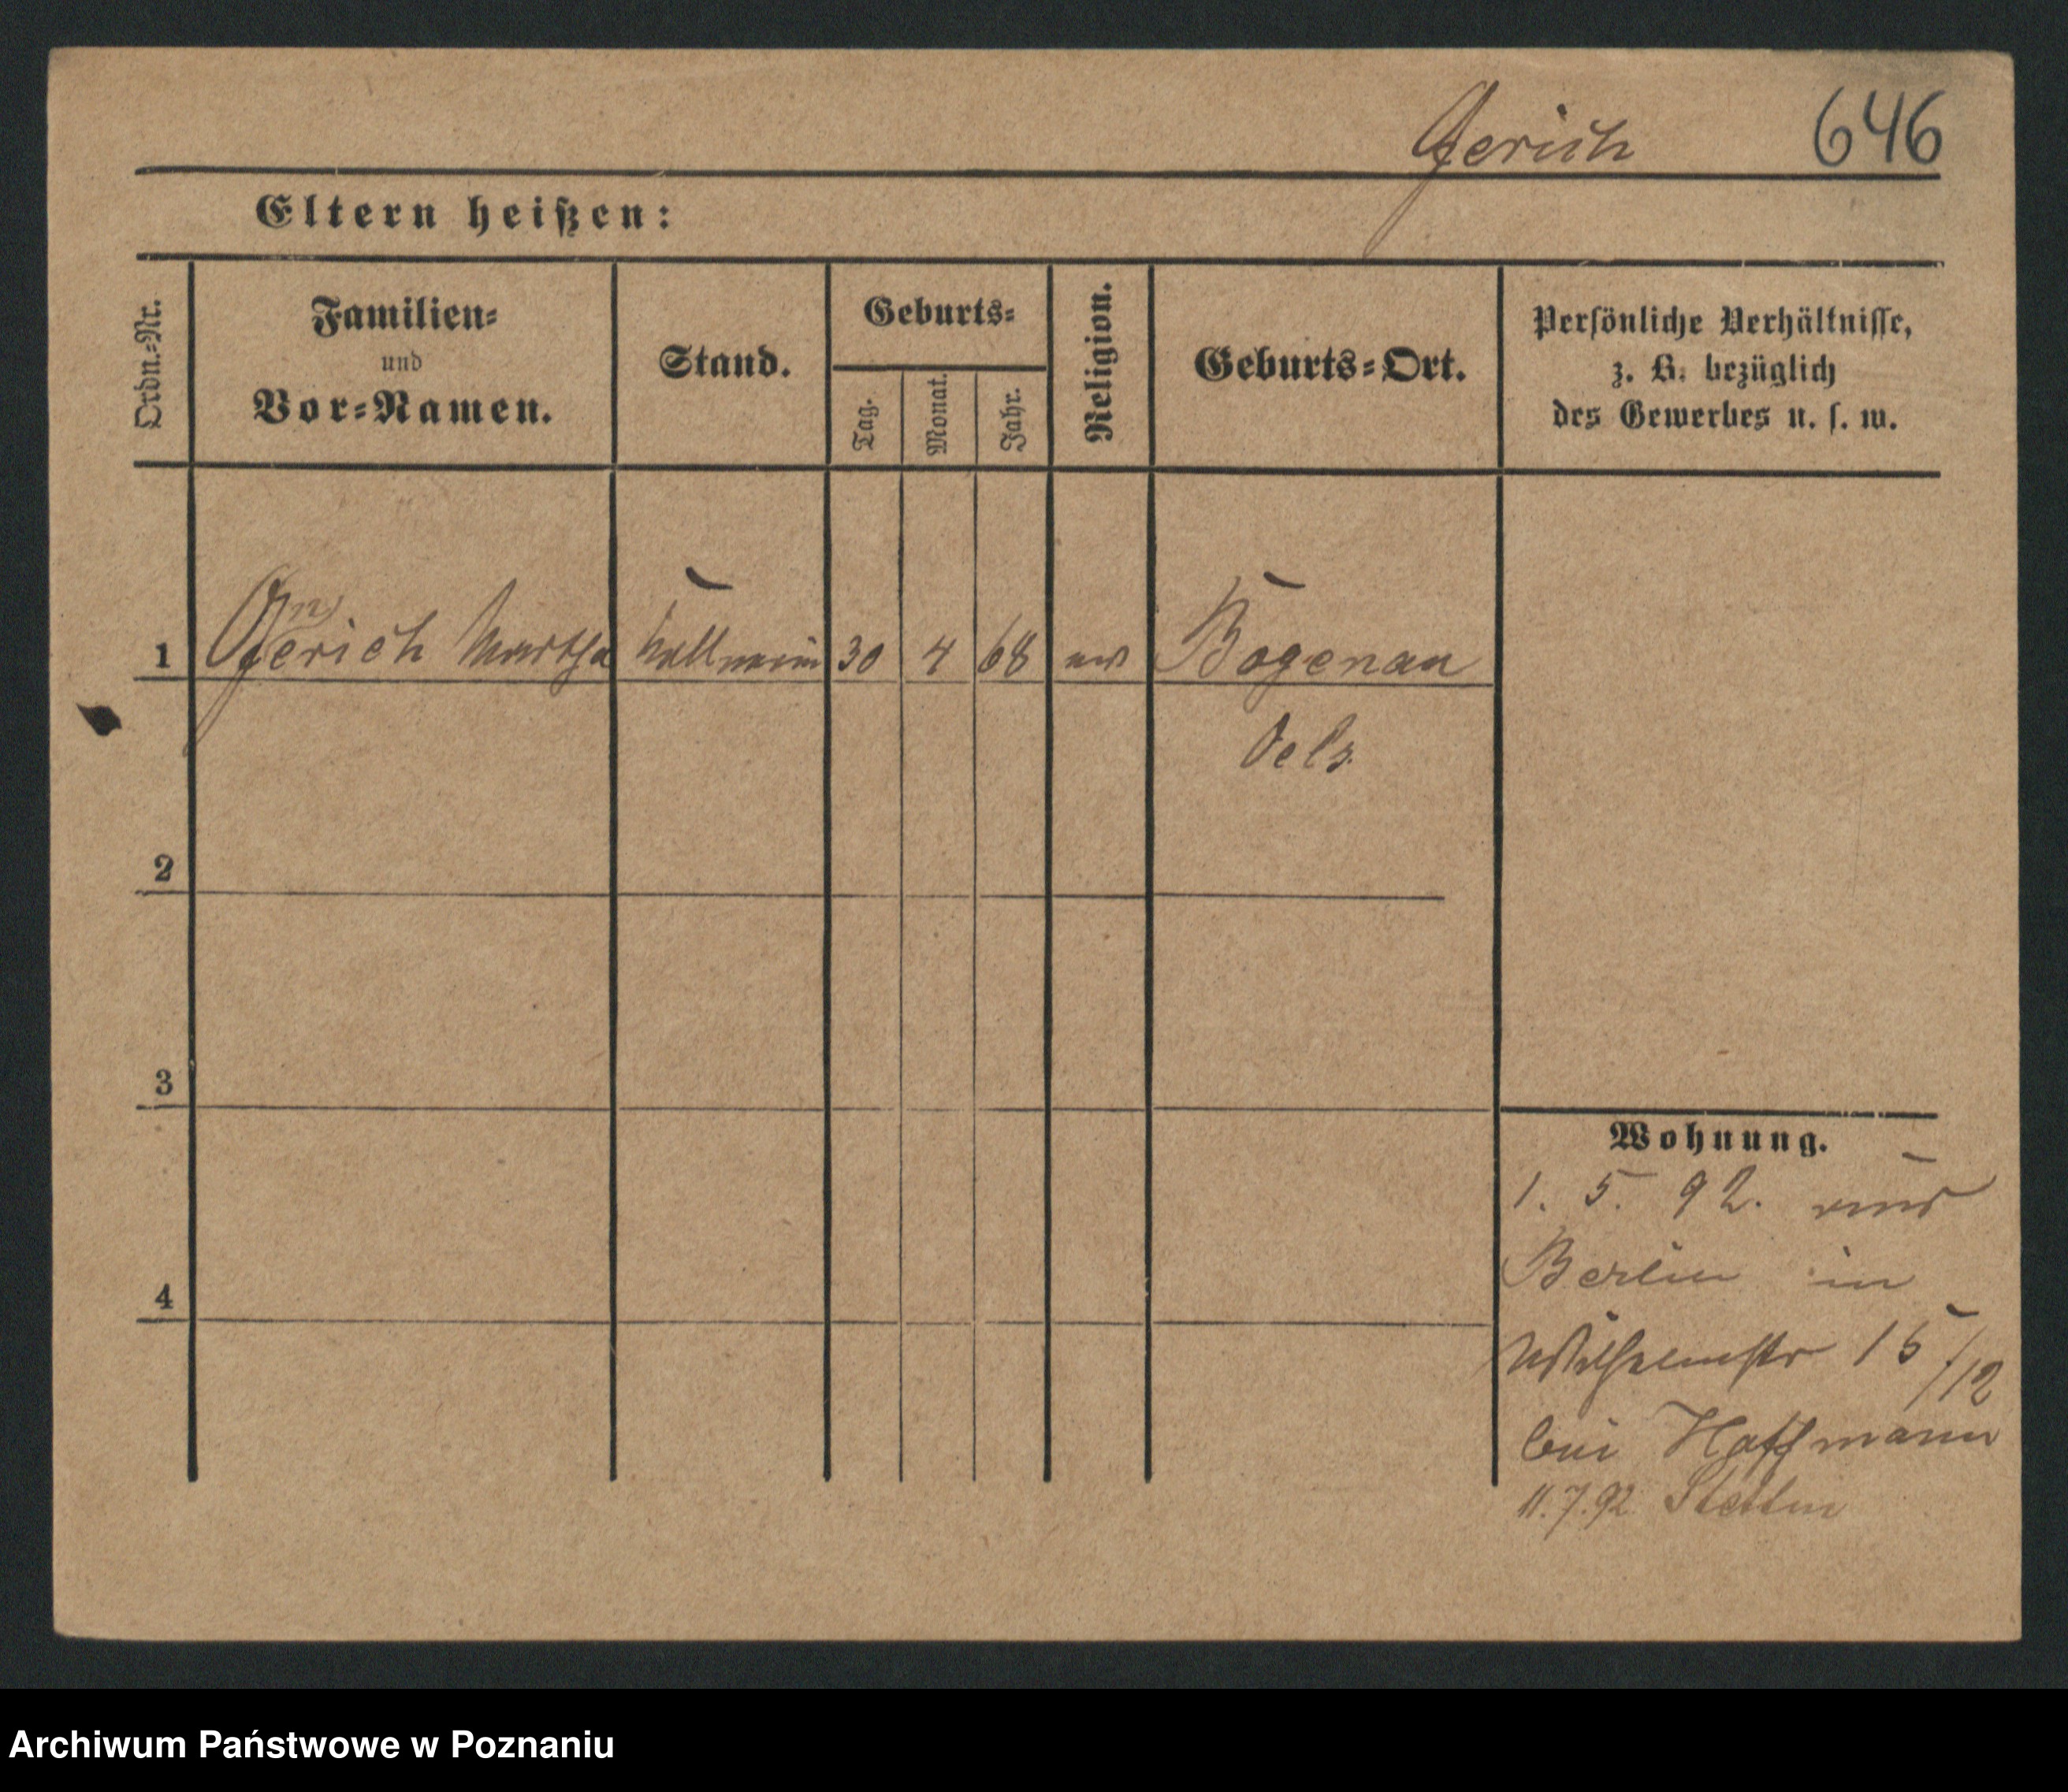 Gerich 646
Eltern heißen:
Ordn.-Nr.
Familien-
und
Vor-Namen.
Stand.
Geburts-
Tag.
Monat.
Jahr.
Religion.
Geburts-Ort.
Persönliche Verhältnisse,
z. B. bezüglich
des Gewerbes u. s. w.
1 Gerich Martha Kellnerin 30 4 68 ev Bogenau
Oels
2
3
4
Wohnung.
1. 5. 92. aus
Berlin in
Wilhelmstr 15/12
bei Hoffmann
11.7.92 Stettin
Archiwum Państwowe w Poznaniu